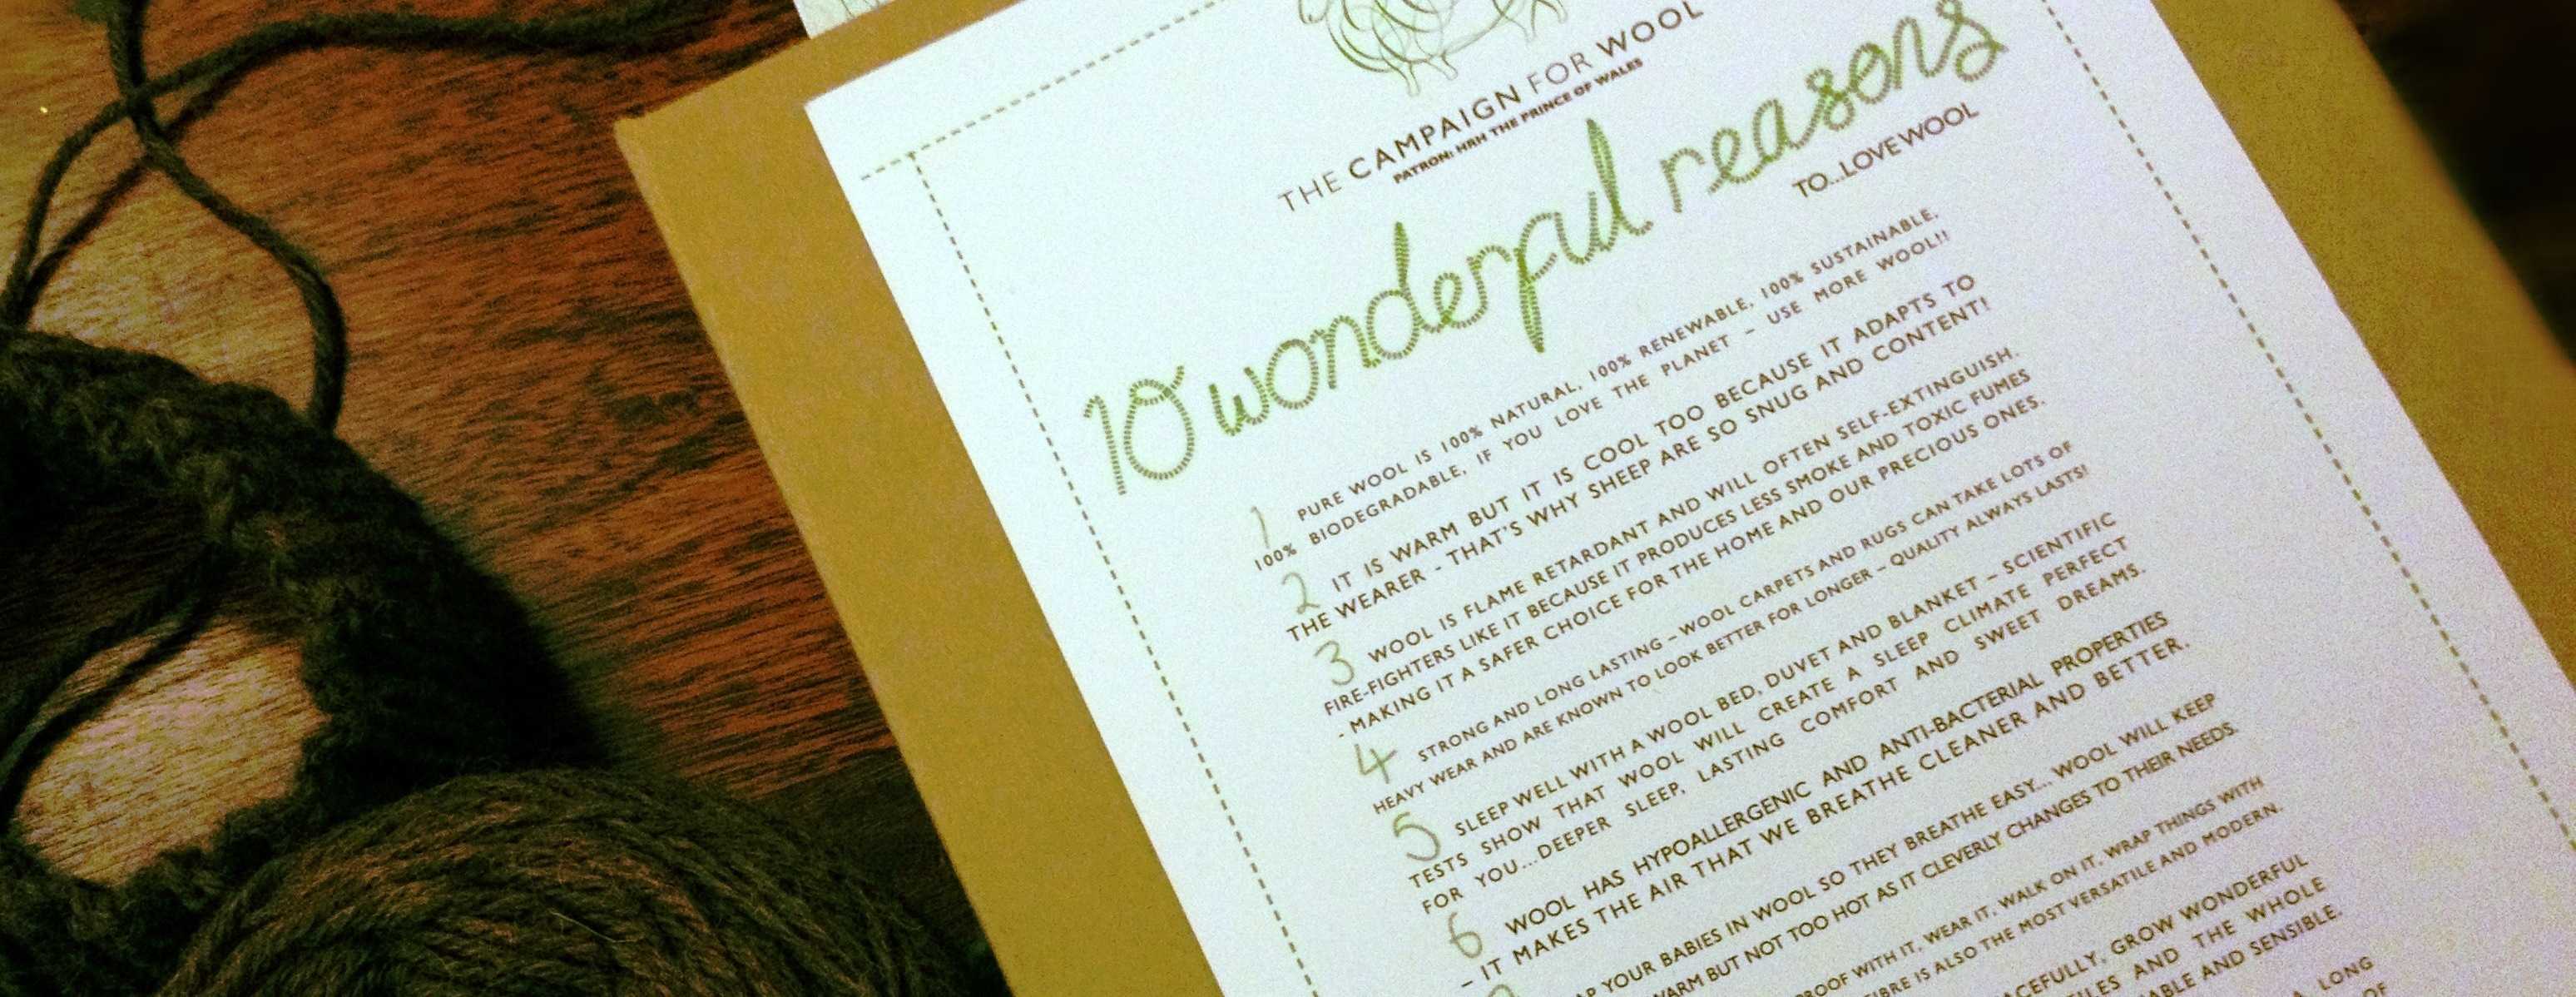 THE CAMPAIGN FOR WOOL
PATRON: HRH THE PRINCE OF WALES
10 wonderful reasons
TO...LOVE WOOL
1 PURE WOOL IS 100% NATURAL, 100% RENEWABLE, 100% SUSTAINABLE,
100% BIODEGRADABLE, IF YOU LOVE THE PLANET – USE MORE WOOL!!
2 IT IS WARM BUT IT IS COOL TOO BECAUSE IT ADAPTS TO
THE WEARER - THAT'S WHY SHEEP ARE SO SNUG AND CONTENT!
3 WOOL IS FLAME RETARDANT AND WILL OFTEN SELF-EXTINGUISH.
FIRE-FIGHTERS LIKE IT BECAUSE IT PRODUCES LESS SMOKE AND TOXIC FUMES
- MAKING IT A SAFER CHOICE FOR THE HOME AND OUR PRECIOUS ONES.
4 STRONG AND LONG LASTING – WOOL CARPETS AND RUGS CAN TAKE LOTS OF
HEAVY WEAR AND ARE KNOWN TO LOOK BETTER FOR LONGER – QUALITY ALWAYS LASTS!
5 SLEEP WELL WITH A WOOL BED, DUVET AND BLANKET – SCIENTIFIC
TESTS SHOW THAT WOOL WILL CREATE A SLEEP CLIMATE PERFECT
FOR YOU...DEEPER SLEEP, LASTING COMFORT AND SWEET DREAMS.
6 WOOL HAS HYPOALLERGENIC AND ANTI-BACTERIAL PROPERTIES
– IT MAKES THE AIR THAT WE BREATHE CLEANER AND BETTER.
YOUR BABIES IN WOOL SO THEY BREATHE EASY... WOOL WILL KEEP
WARM BUT NOT TOO HOT AS IT CLEVERLY CHANGES TO THEIR NEEDS.
PROOF WITH IT, WEAR IT, WALK ON IT, WRAP THINGS WITH
FIBRE IS ALSO THE MOST VERSATILE AND MODERN.
GROW WONDERFUL
AND THE WHOLE
AND SENSIBLE.
A LONG
OF